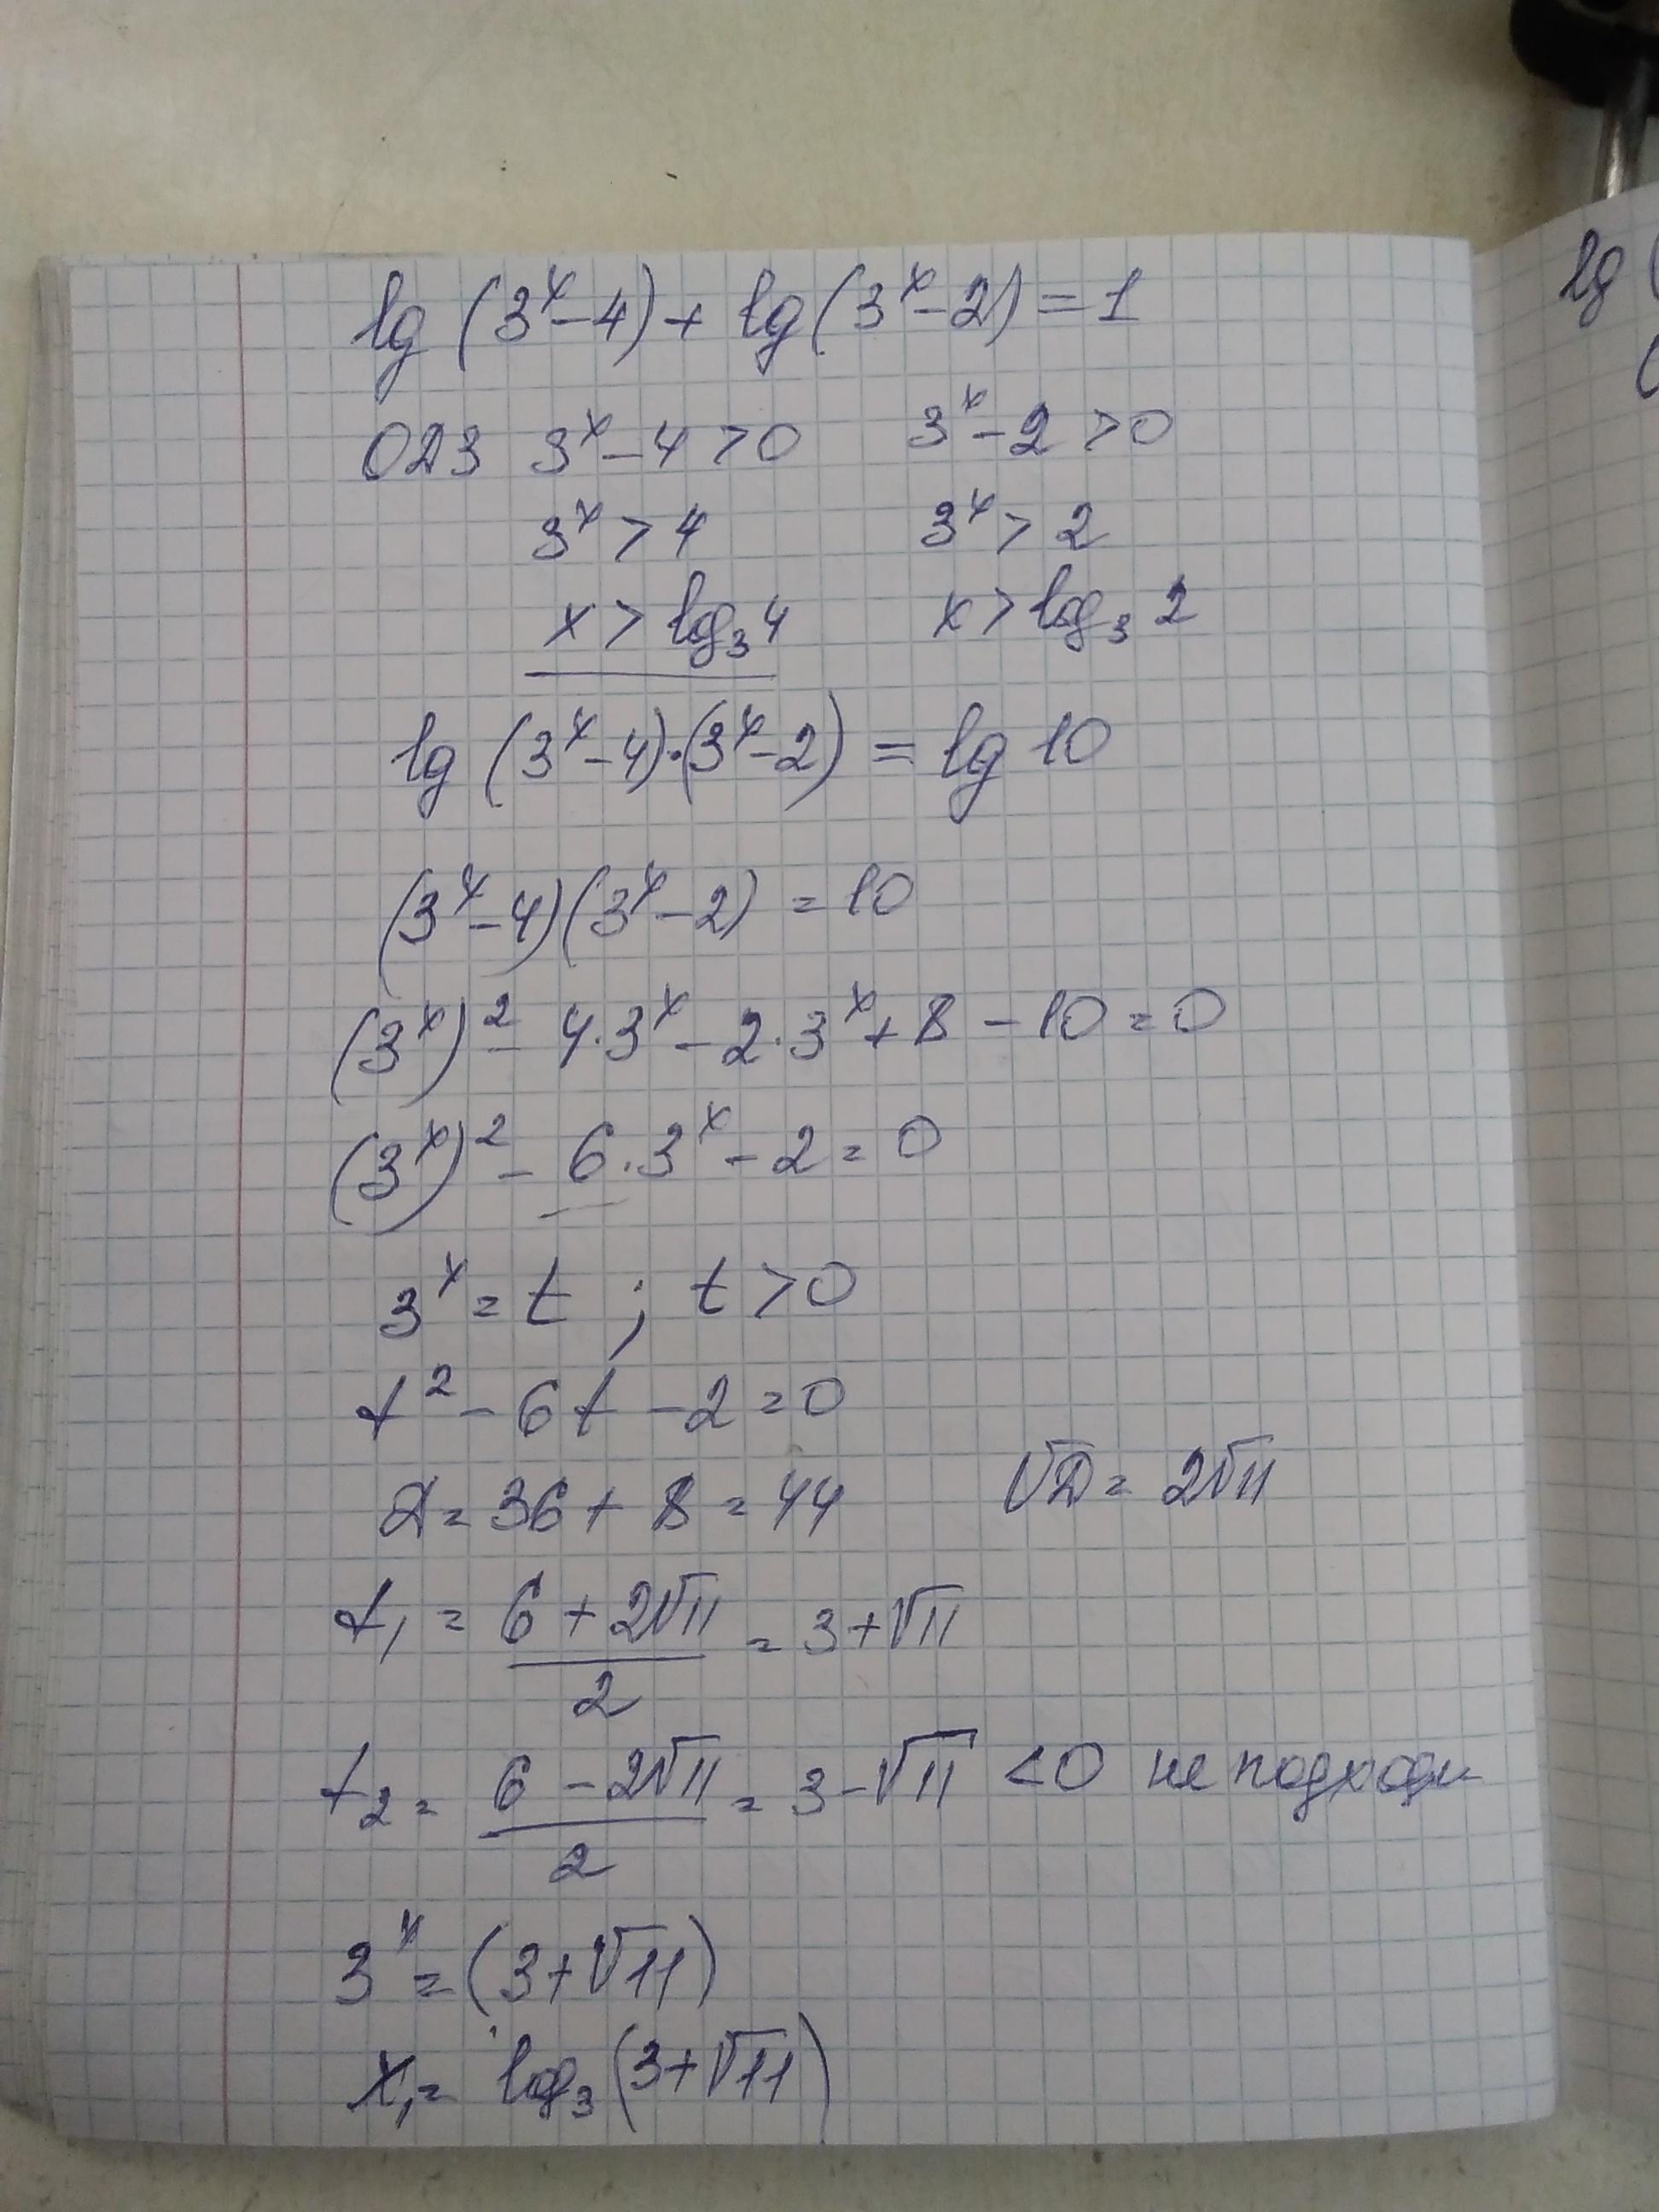 lg (3^x - 4) + lg (3^x - 2) = 1
ОДЗ 3^x - 4 > 0 3^x - 2 > 0
3^x > 4 3^x > 2
x > log_3 4 x > log_3 2
lg (3^x - 4)·(3^x - 2) = lg 10
(3^x - 4)(3^x - 2) = 10
(3^x)^2 - 4·3^x - 2·3^x + 8 - 10 = 0
(3^x)^2 - 6·3^x - 2 = 0
3^x = t ; t > 0
t^2 - 6t - 2 = 0
Д = 36 + 8 = 44 √Д = 2√11
t_1 = (6 + 2√11)/2 = 3 + √11
t_2 = (6 - 2√11)/2 = 3 - √11 < 0 не подходи
3^x = (3 + √11)
x_1 = log_3 (3 + √11)
lg (
(